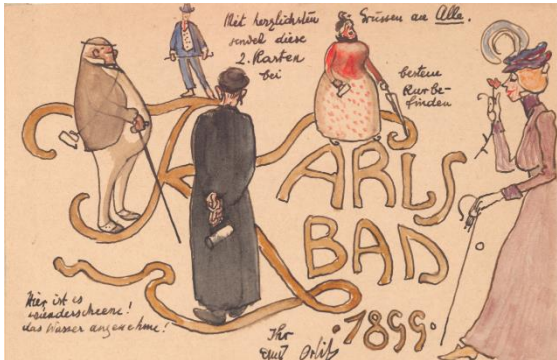 Mit herzlichsten Grüssen an Alle.
sendet diese
2. Karten
bei
bestem
Kurbe-
finden
KARLS
BAD
1899.
Hier ist es
wunderscheene!
das Wasser angenehme!
Ihr
Emil Orlik